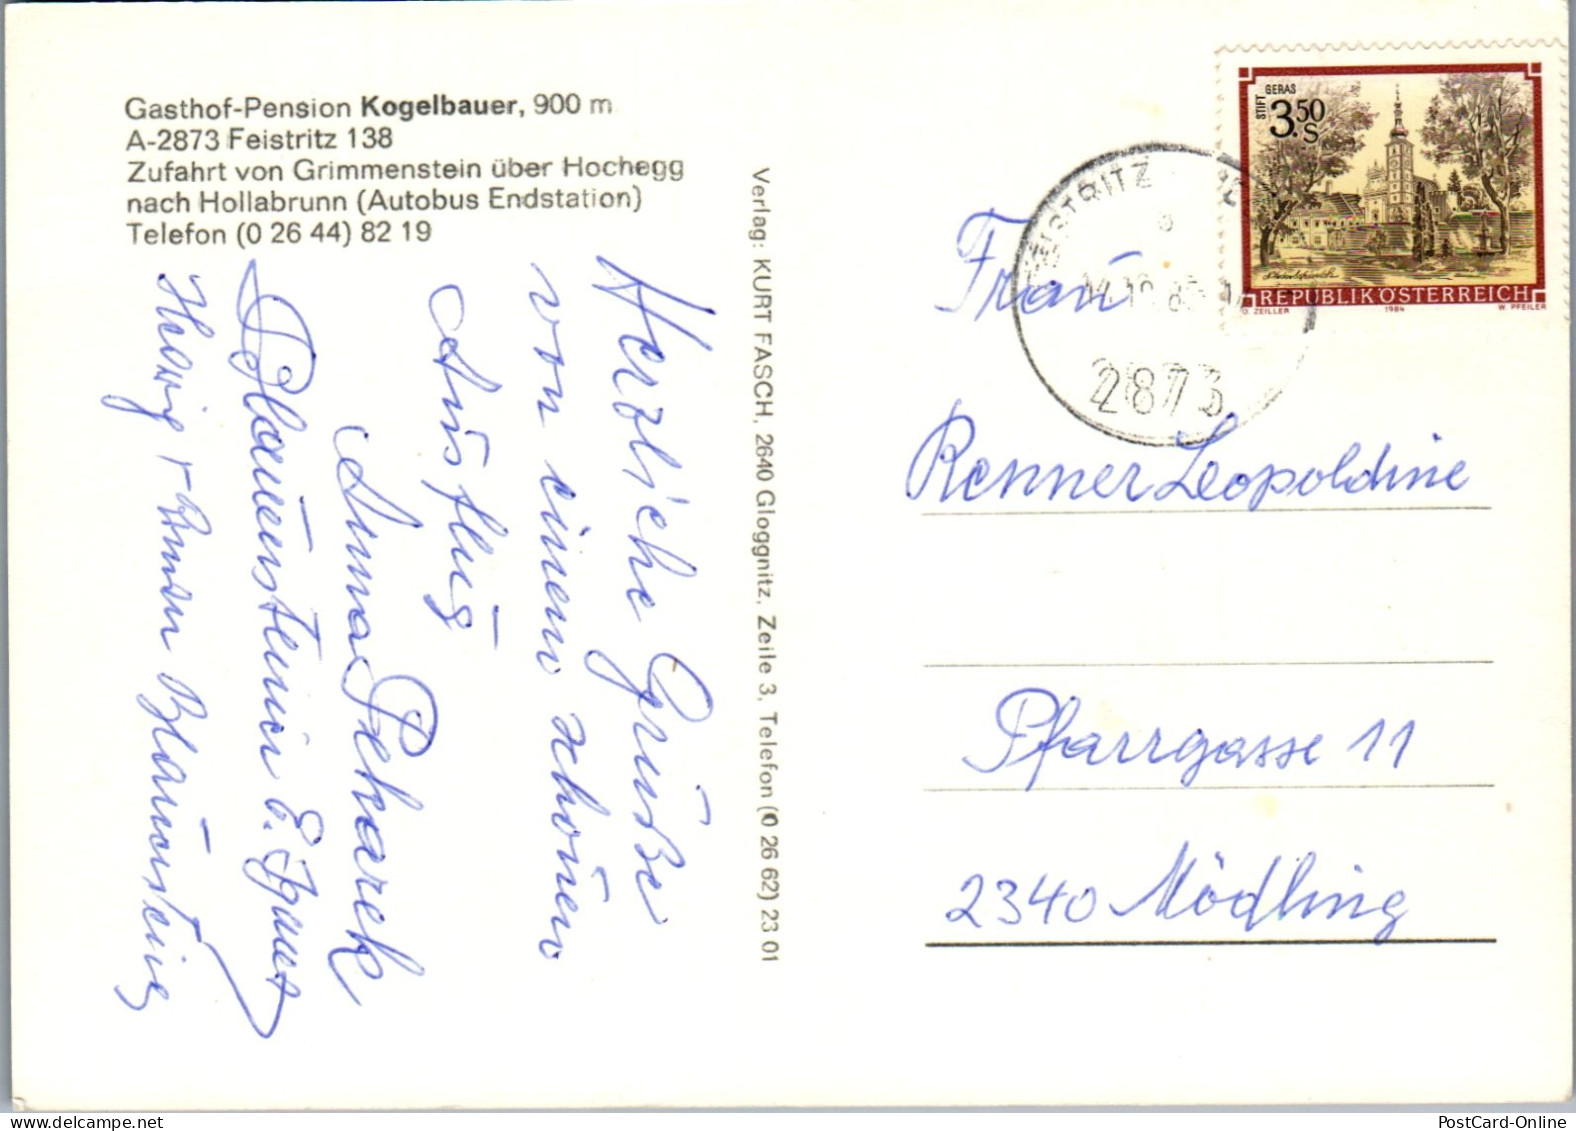 Gasthof-Pension Kogelbauer, 900 m
A-2873 Feistritz 138
Zufahrt von Grimmenstein über Hochegg
nach Hollabrunn (Autobus Endstation)
Telefon (0 26 44) 82 19
Herzliche Grüße
von einem schönen
Ausflug
Anna
Blauensteiner
Herwig + Blauensteiner
Verlag: KURT FASCH, 2640 Gloggnitz, Zeile 3, Telefon (0 26 62) 23 01
STIFT GERAS
3.50
S
REPUBLIK ÖSTERREICH
O. ZEILLER 1984 W. PFEILER
FEISTRITZ
2873
Frau
Renner Leopoldine
Pfarrgasse 11
2340 Mödling
PostCard-Online